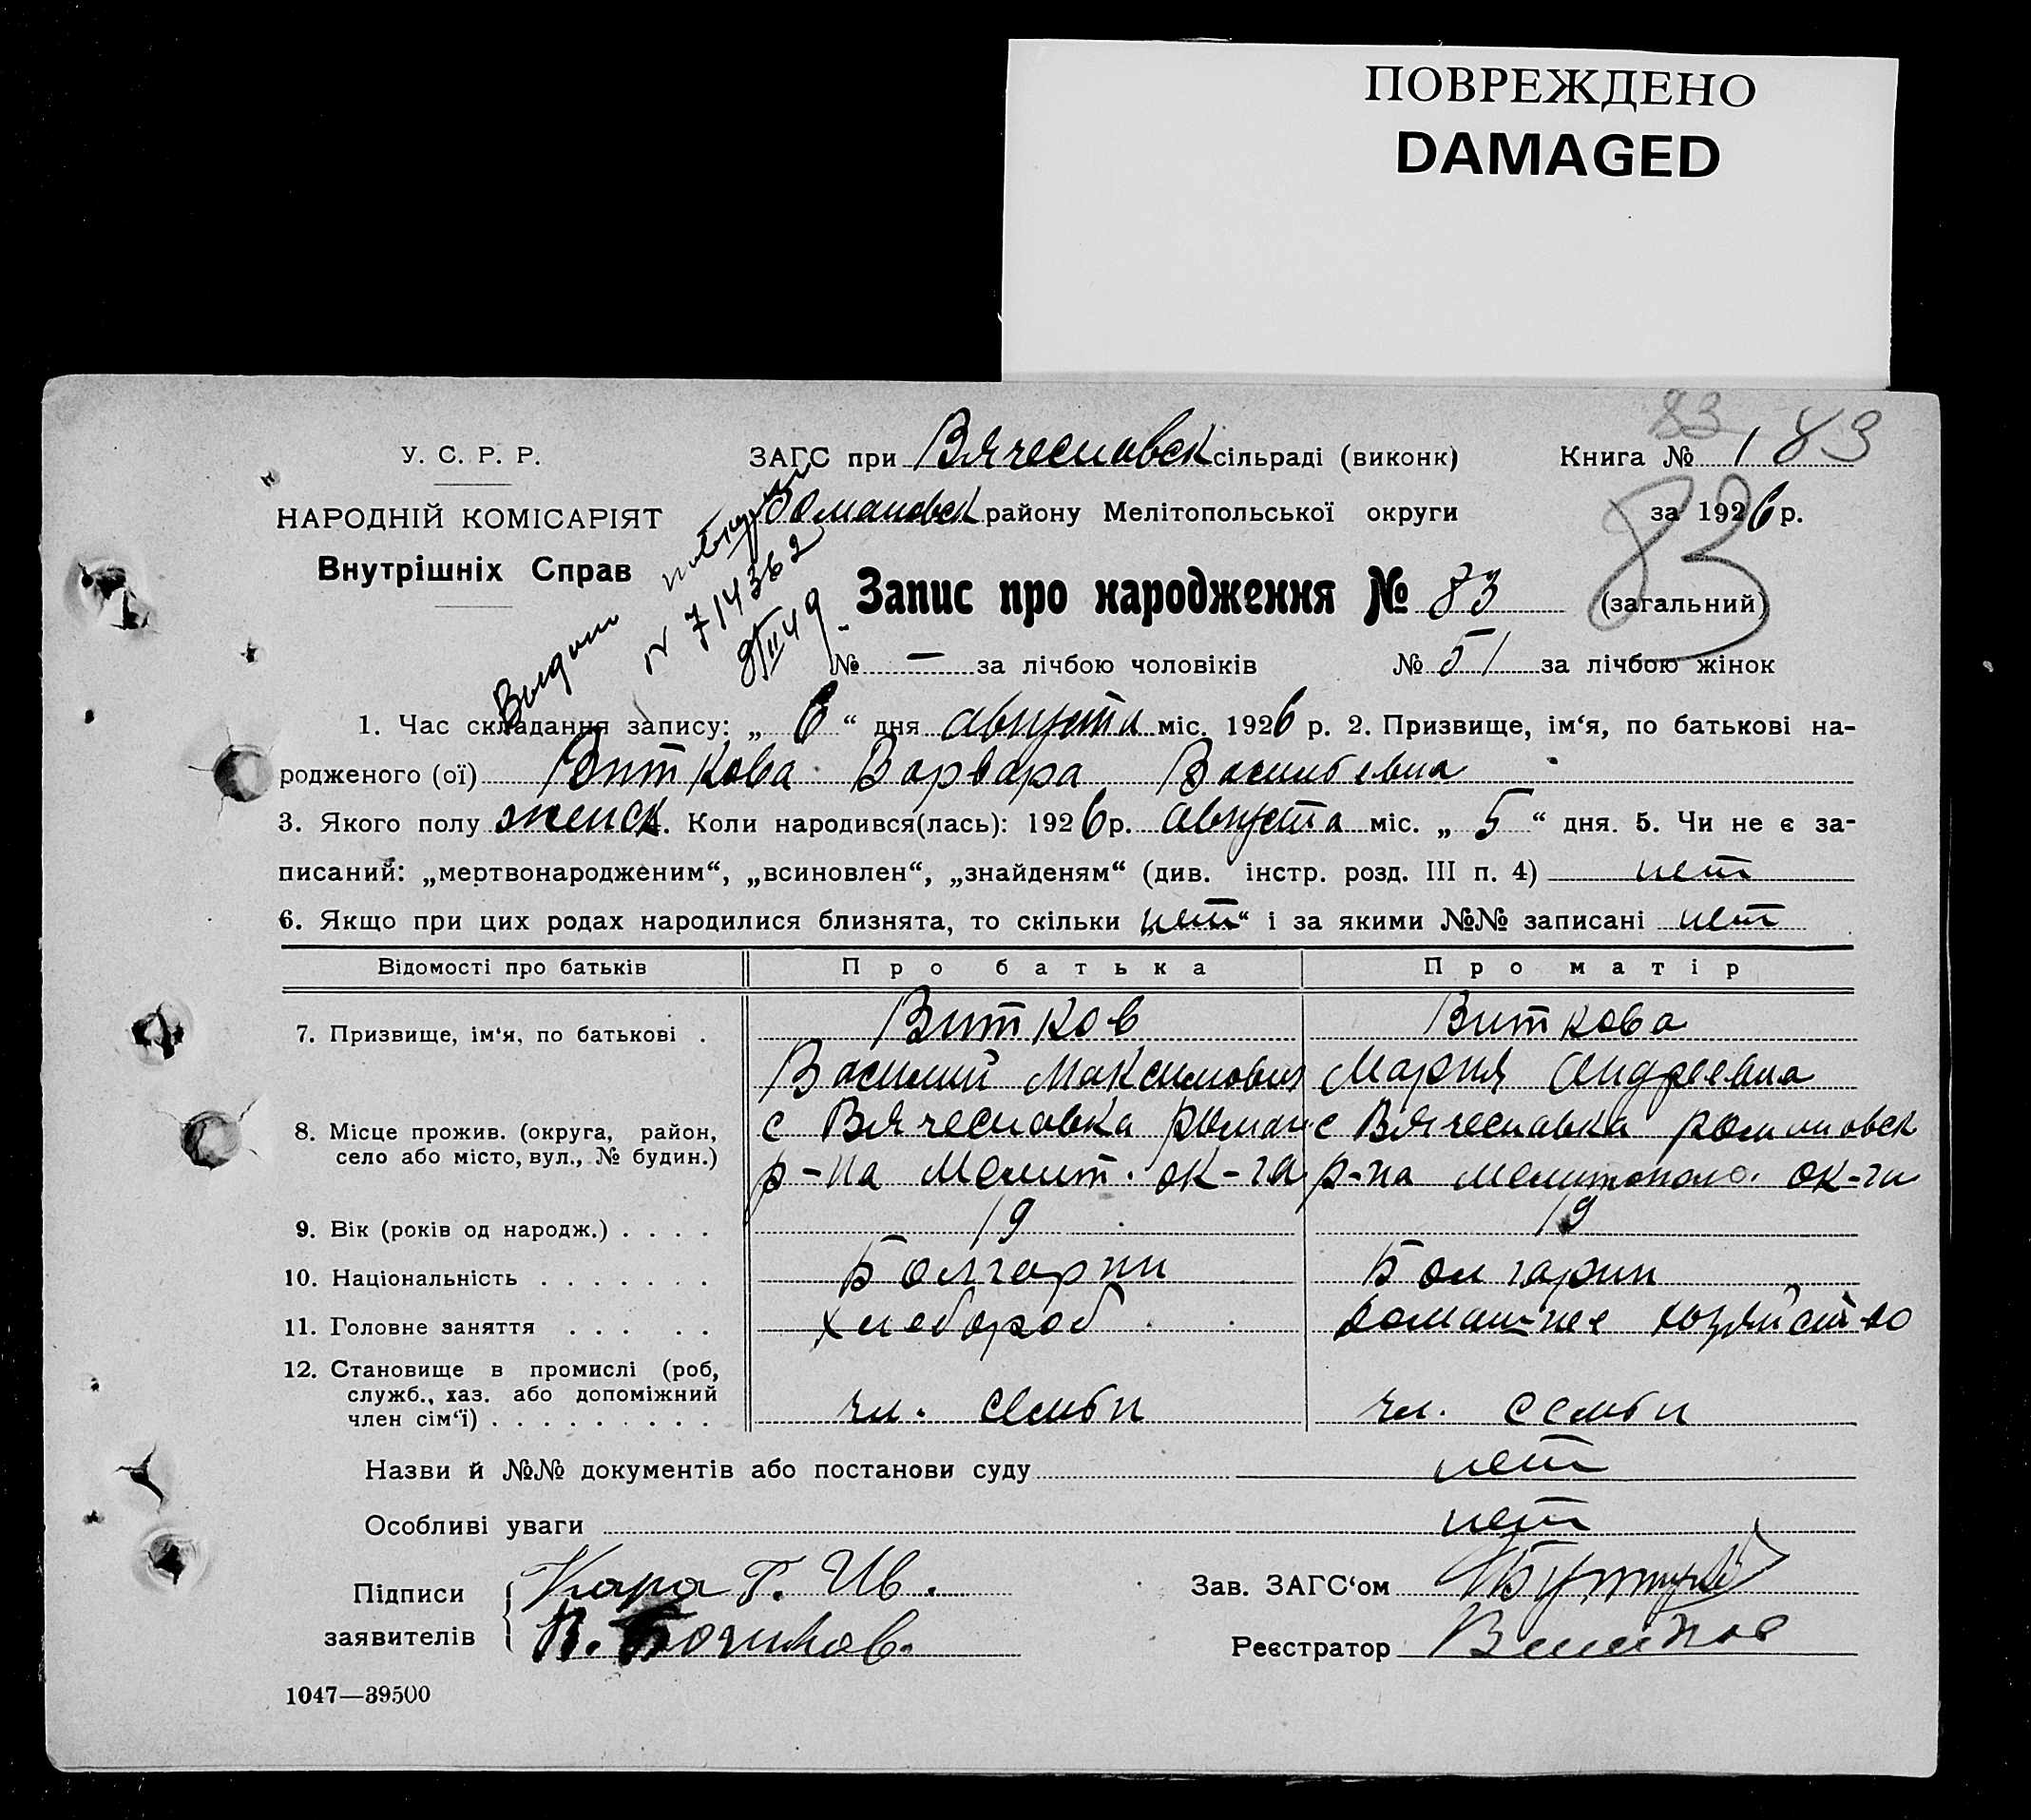 ПОВРЕЖДЕНО
DAMAGED
83
У. С. Р. Р.
ЗАГС при Вячеславск сільраді (виконк)
Книга № 1 83
НАРОДНІЙ КОМІСАРІЯТ
Романовск району Мелітопольської округи
за 1926 р.
83
Внутрішніх Справ
Запис про народження № 83 (загальний)
Выдано
№ 714362
8/II 49
№ — за лічбою чоловіків № 51 за лічбою жінок
1. Час складання запису: „ 6 “ дня августа міс. 1926 р. 2. Призвище, ім‘я, по батькові на-
родженого (ої) Виткова Варвара Васильевна
3. Якого полу женск. Коли народився(лась): 1926 р. августа міс. „ 5 “ дня. 5. Чи не є за-
писаний: „мертвонародженим“, „всиновлен“, „знайденям“ (див. інстр. розд. III п. 4) нет
6. Якщо при цих родах народилися близнята, то скільки „нет“ і за якими №№ записані нет
Відомості про батьків Про батька Про матір
7. Призвище, ім‘я, по батькові . Витков Виткова
Василий Максимович Мария Андреевна
8. Місце прожив. (округа, район, с Вячеславка роман с Вячеславка романовск
село або місто, вул., № будин.) р-на Мелит. ок-га р-на мелитопол. ок-га
9. Вік (років од народж.) . . . . 19 19
10. Національність . . . . . . . Болгарин Болгарин
11. Головне заняття . . . . . хлебороб домашнее хозяйство
12. Становище в промислі (роб,
служб., хаз. або допоміжний
член сім‘ї) . . . . . . . . . чл. семьи чл. семьи
Назви й №№ документів або постанови суду нет
Особливі уваги нет
Підписи Кара Г. Ив. Зав. ЗАГС‘ом
заявителів В. Реєстратор
1047—39500